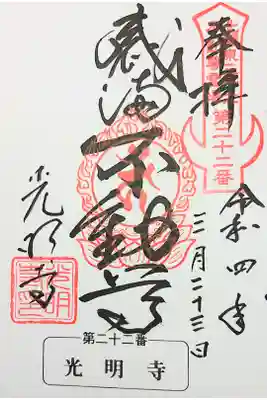 奉拝
第二十二番
令和四年
三月二十三日
感満不動尊
光明寺
第二十二番
光明寺